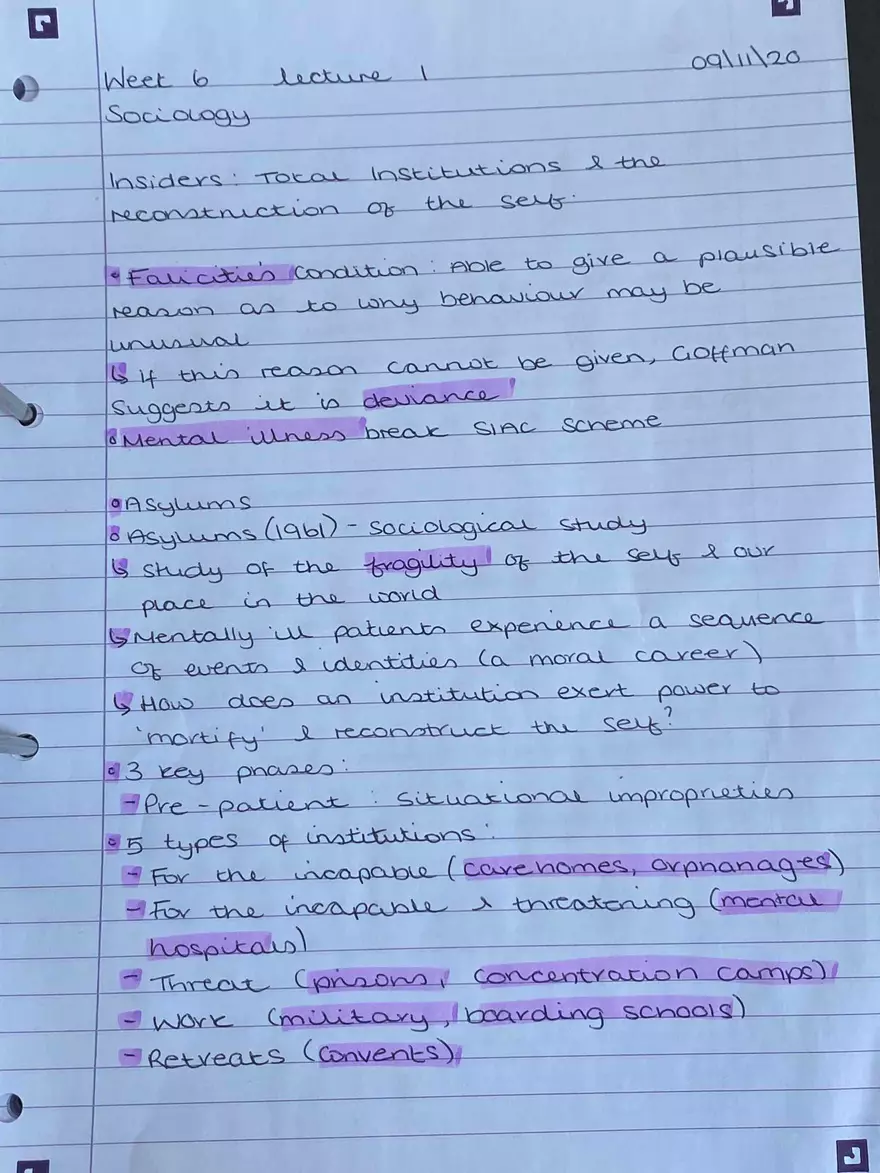 Week 6 lecture 1 09/11/20
Sociology
Insiders: Total Institutions & the
reconstruction of the self.
• Falicitie's Condition: Able to give a plausible
reason as to why behaviour may be
unusual
↳ if this reason cannot be given, Goffman
suggests it is deviance
• Mental illness break SIAC scheme
• Asylums
• Asylums (1961) - sociological study
↳ study of the fragility of the self & our
place in the world
↳ Mentally ill patients experience a sequence
of events & identities (a moral career)
↳ How does an institution exert power to
'mortify' & reconstruct the self?
• 3 key phases:
- Pre-patient: situational improprieties
• 5 types of institutions:
- For the incapable (carehomes, orphanages)
- For the incapable & threatening (mental
hospitals)
- Threat (prisons, concentration camps)
- Work (military, boarding schools)
- Retreats (convents)